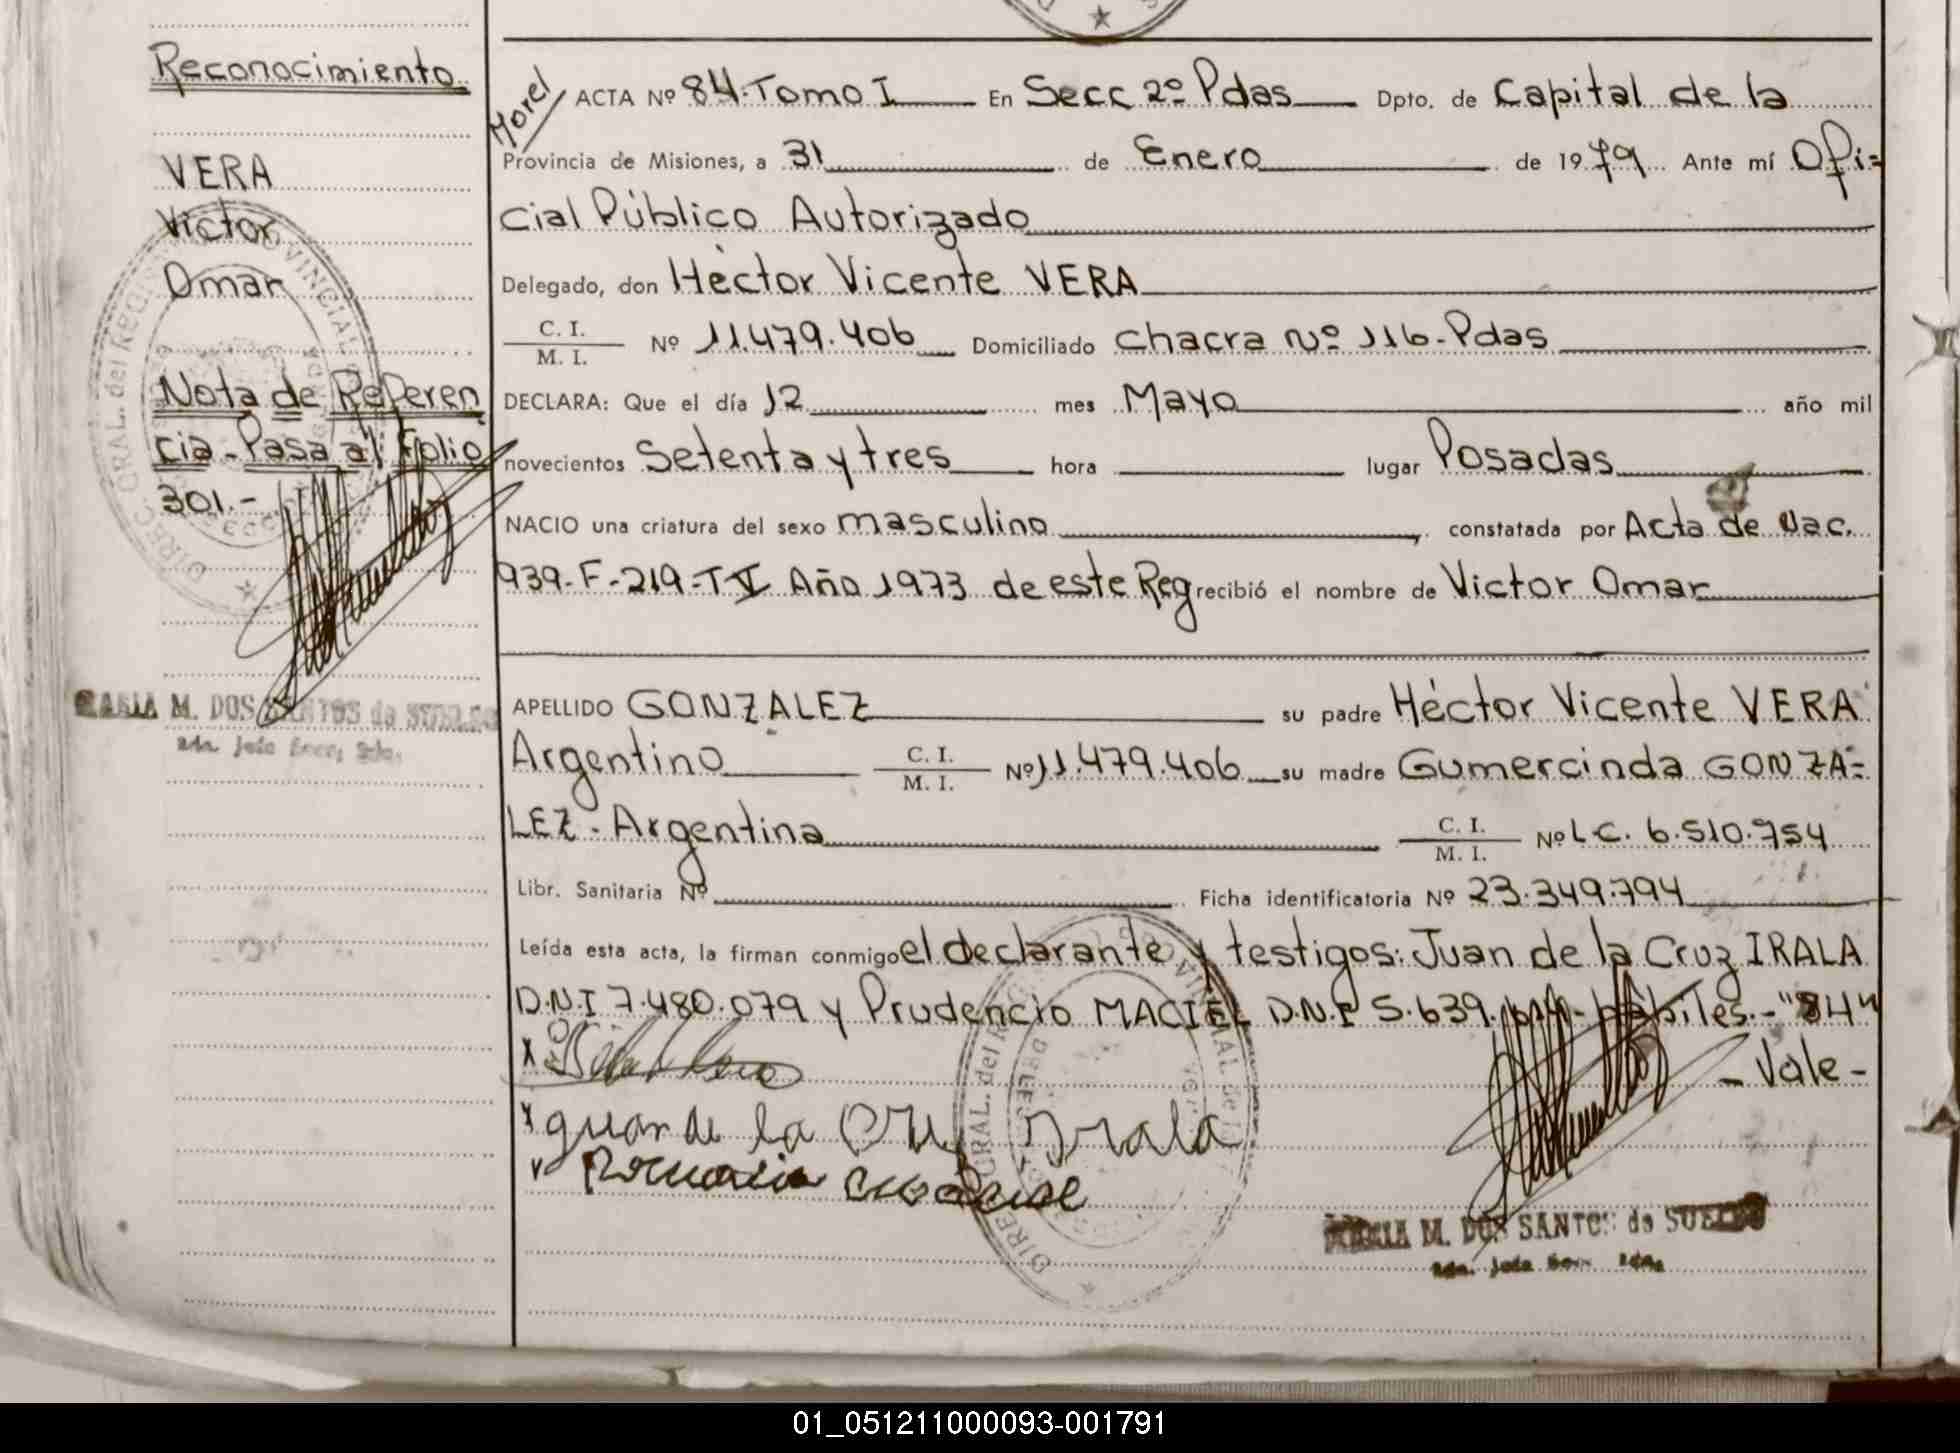 Reconocimiento
VERA
Victor
Omar
Nota de Referen
cia - Pasa al Folio
301.-
MARIA M. DOS SANTOS de SUELDO
Morel
ACTA Nº 84. Tomo I En Secc 2º Pdas Dpto. de Capital de la
Provincia de Misiones, a 31 de Enero de 1979 Ante mí Ofi=
cial Público Autorizado
Delegado, don Héctor Vicente VERA
C. I.
M. I. Nº 11.479.406 Domiciliado Chacra Nº 116-Pdas
DECLARA: Que el día 12 mes Mayo año mil
novecientos Setenta y tres hora lugar Posadas
NACIO una criatura del sexo masculino, constatada por Acta de Nac.
939-F-219-T V Año 1973 de este Reg recibió el nombre de Victor Omar
APELLIDO GONZALEZ su padre Héctor Vicente VERA
Argentino C. I.
M. I. Nº 11.479.406 su madre Gumercinda GONZA=
LEZ - Argentina C. I.
M. I. Nº L C. 6.510.754
Libr. Sanitaria Nº Ficha identificatoria Nº 23.349.794
Leída esta acta, la firman conmigo el declarante y testigos: Juan de la Cruz IRALA
D.N.I 7.480.079 y Prudencio MACIEL D.N.I 5.639. hábiles.- "84"
- Vale -
Juan de la Cruz Irala
MARIA M. DOS SANTOS de SUELDO
01_051211000093-001791